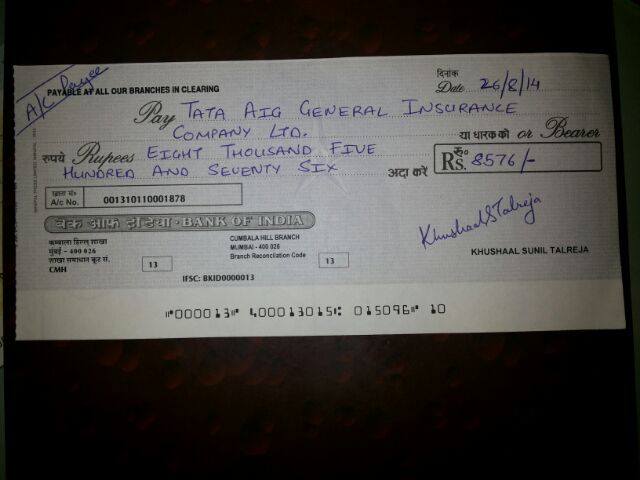 A/C Payee
PAYABLE AT ALL OUR BRANCHES IN CLEARING
दिनांक
Date 26/8/14
Pay TATA AIG GENERAL INSURANCE
COMPANY LTD.
या धारक को or Bearer
रुपये Rupees EIGHT THOUSAND FIVE
HUNDRED AND SEVENTY SIX
अदा करें
रु॰ Rs. 8576/-
खाता सं॰
A/c No. 001310110001878
बैंक ऑफ़ इंडिया - BANK OF INDIA
कम्बाला हिल शाखा
मुंबई - 400 026
शाखा समाधान कूट सं.
CMH
13
CUMBALA HILL BRANCH
MUMBAI - 400 026
Branch Reconciliation Code
13
IFSC: BKID0000013
Khushaal S Talreja
KHUSHAAL SUNIL TALREJA
⑈000013⑈ 400013015⑆ 015096⑈ 10